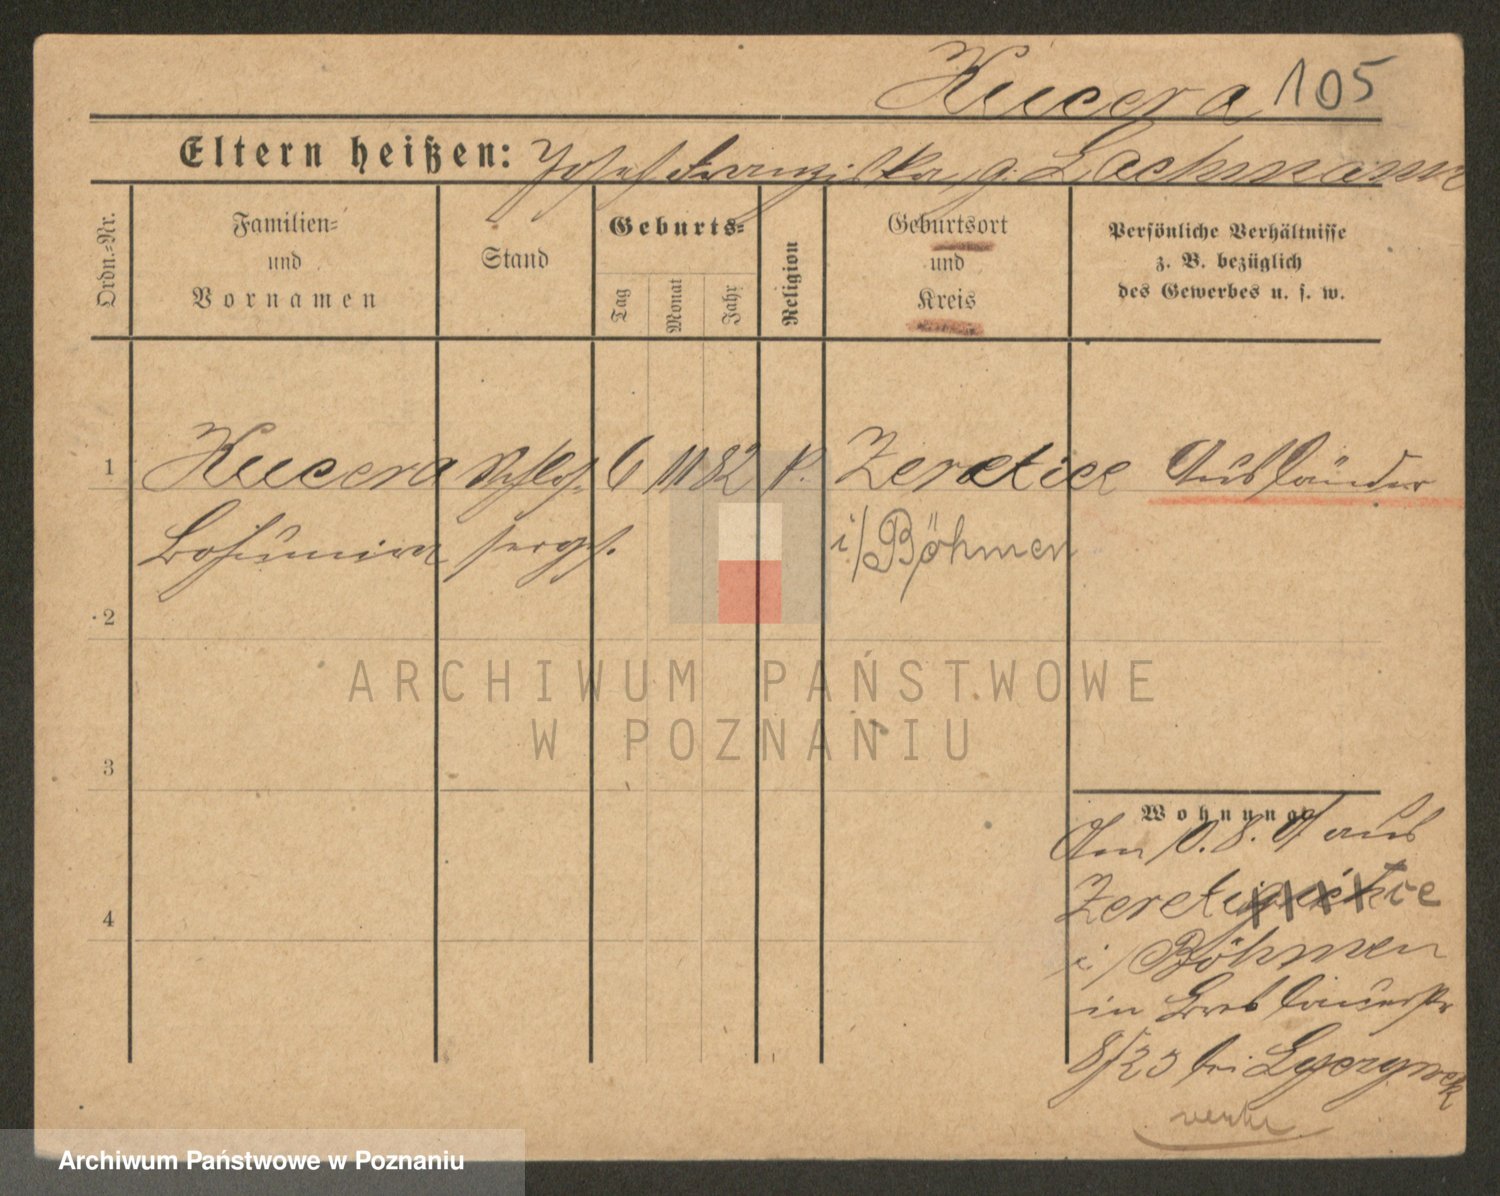 Kucera 105
Eltern heißen: Josef Franziska g. Lachmann
Ordn.-Nr.
Familien-
und
Vornamen
Stand
Geburts-
Tag
Monat
Jahr
Religion
Geburtsort
und
Kreis
Persönliche Verhältnisse
z. B. bezüglich
des Gewerbes u. s. w.
1 Kucera 6 11 82 k. Zeretice Ausländer
Bohumira i/Böhmen
2
3
4
Wohnung
Am 10. 8. 07 aus
i/ Böhmen
in Breslauerstr
8/23 bei
ARCHIWUM PAŃSTWOWE
W POZNANIU
Archiwum Państwowe w Poznaniu